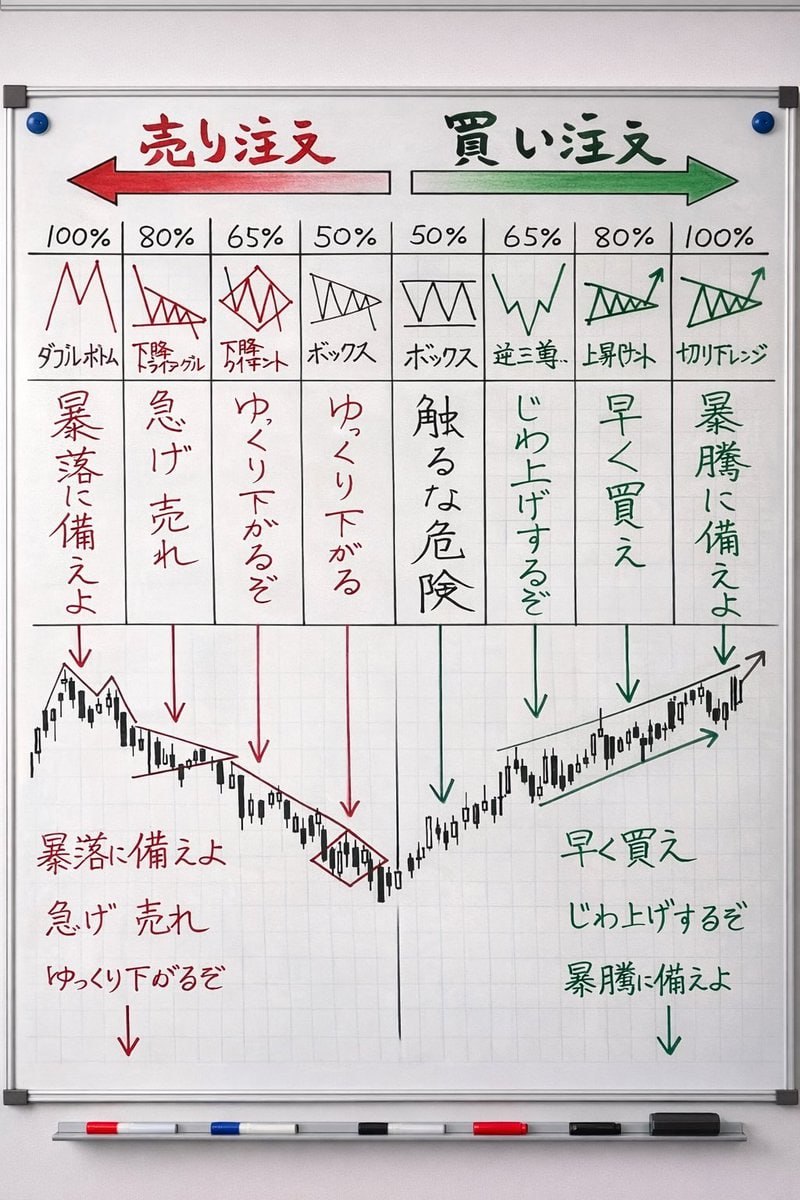 売り注文
買い注文
100% 80% 65% 50% 50% 65% 80% 100%
ダブルボトム
下降
トライアングル
下降
ボックス
ボックス
逆三尊..
上昇
切り下レンジ
暴落に備えよ
急げ 売れ
ゆっくり下がるぞ
ゆっくり下がる
触るな危険
じわ上げするぞ
早く買え
暴騰に備えよ
暴落に備えよ
急げ 売れ
ゆっくり下がるぞ
早く買え
じわ上げするぞ
暴騰に備えよ